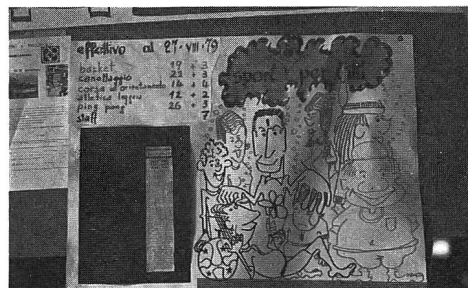 effettivo al 27·VII·79
basket 19 + 3
canottaggio 23 + 3
corsa d'orientamento 16 + 4
atletica leggera 12 + 2
ping pong 26 + 3
staff 7
sport per tutti